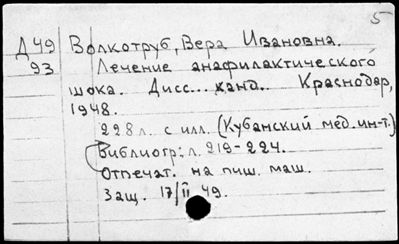 5
Д49 Волкотруб, Вера Ивановна.
93 Лечение анафилактического
шока. Дисс... канд. Краснодар,
1948.
228 л. с илл. (Кубанский мед. ин-т.)
Библиогр: л. 219-224.
Отпечат. на пиш. маш.
Защ. 17/II 49.